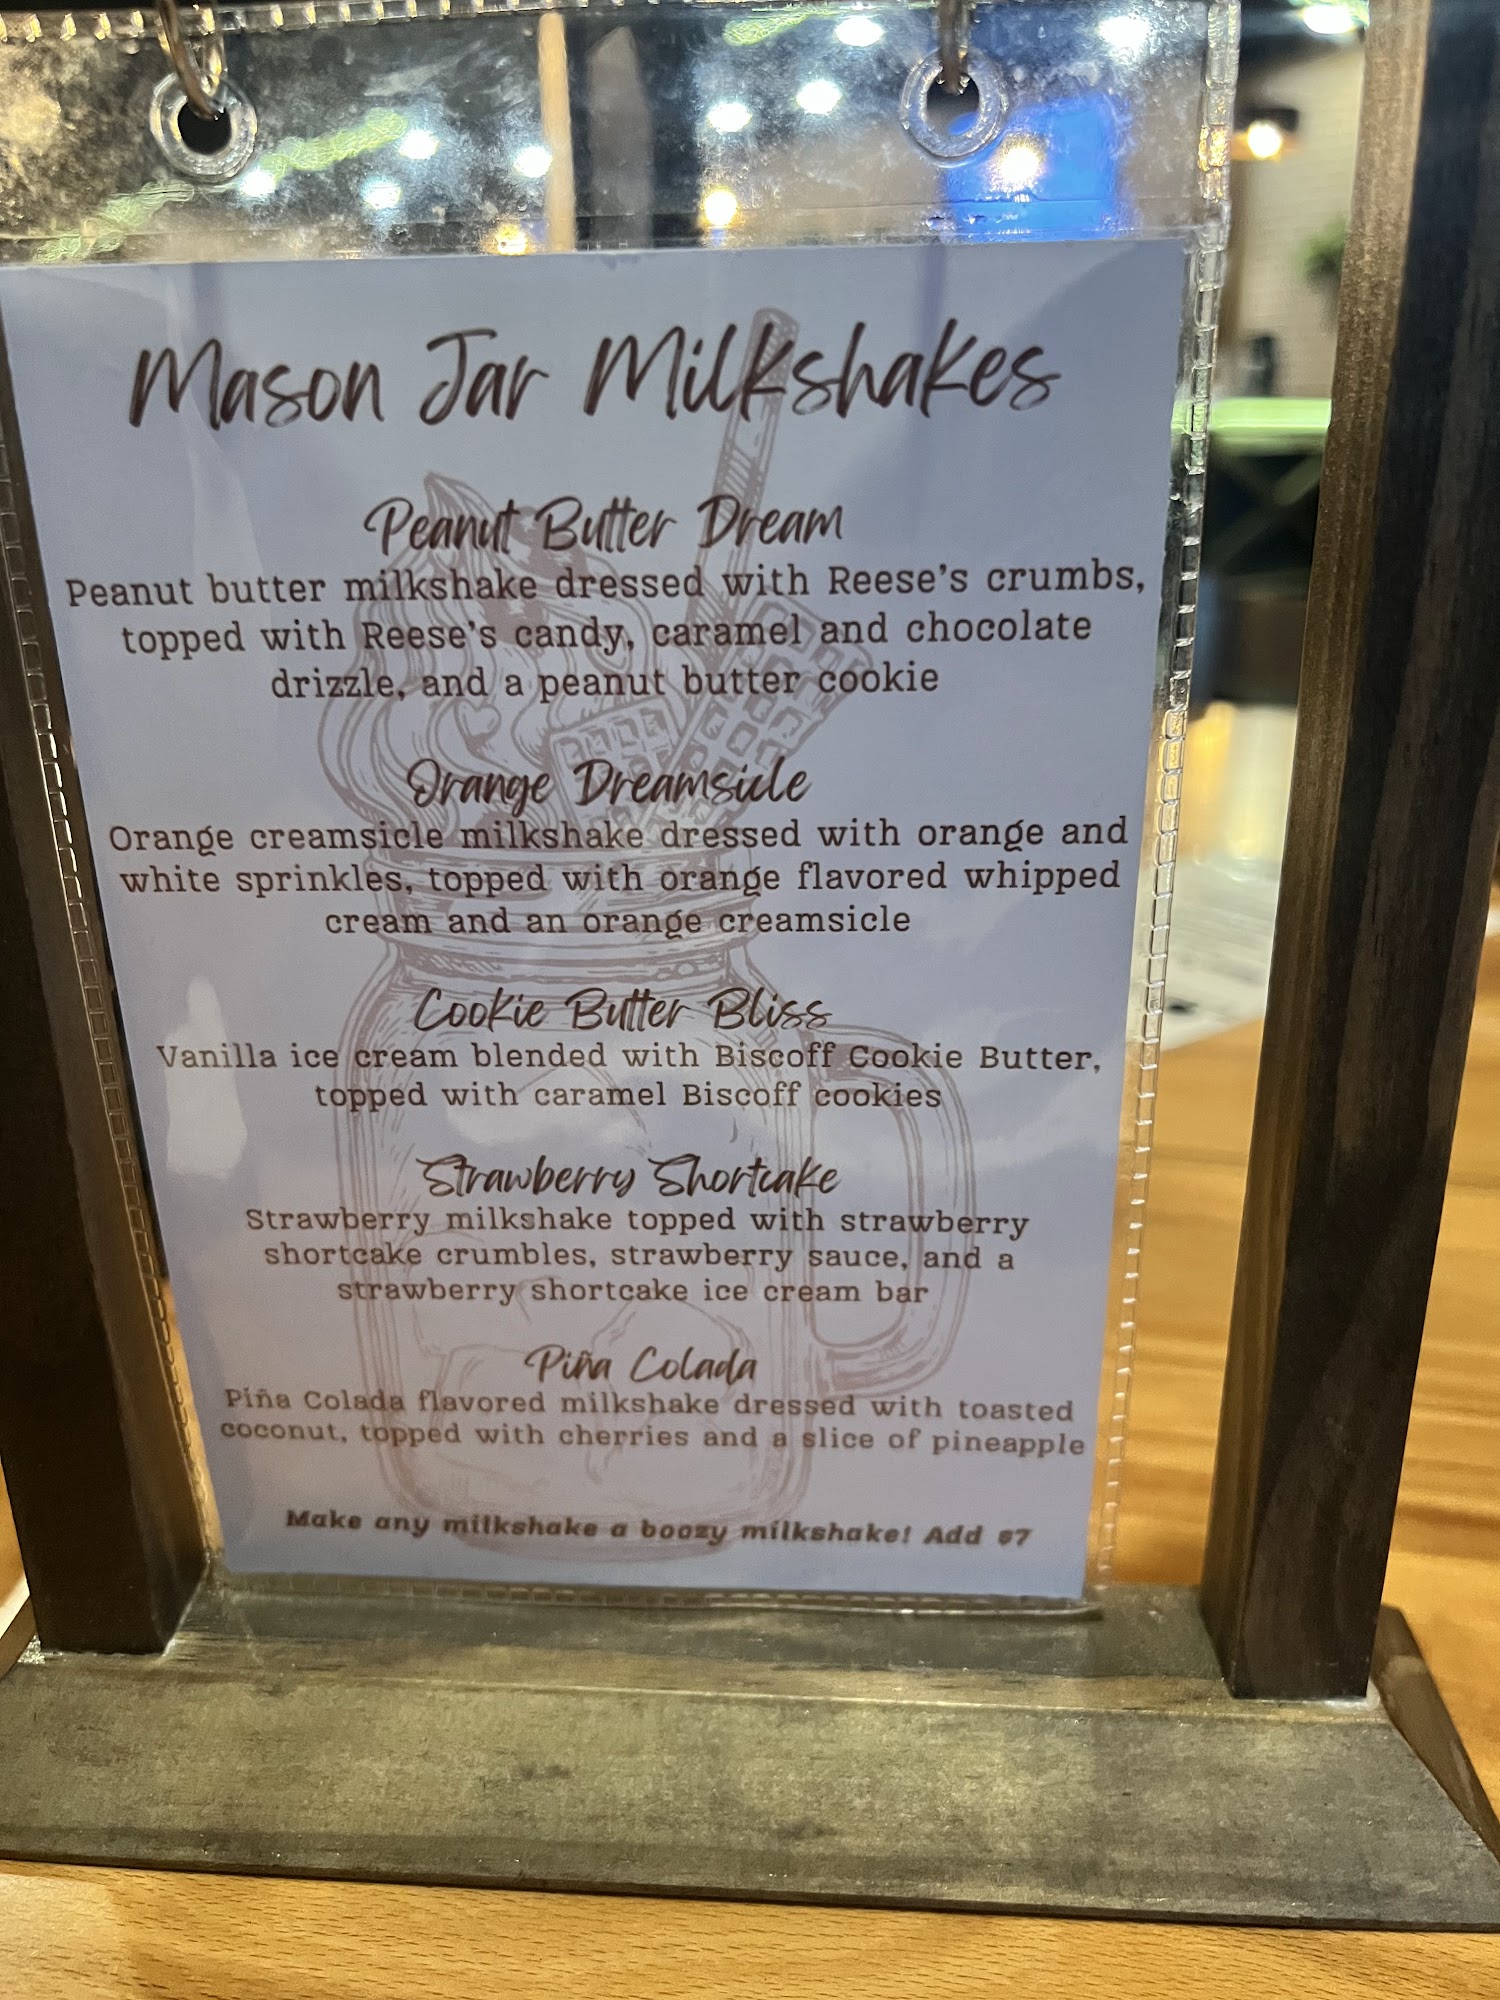 Mason Jar Milkshakes
Peanut Butter Dream
Peanut butter milkshake dressed with Reese's crumbs,
topped with Reese's candy, caramel and chocolate
drizzle, and a peanut butter cookie
Orange Dreamsicle
Orange creamsicle milkshake dressed with orange and
white sprinkles, topped with orange flavored whipped
cream and an orange creamsicle
Cookie Butter Bliss
Vanilla ice cream blended with Biscoff Cookie Butter,
topped with caramel Biscoff cookies
Strawberry Shortcake
Strawberry milkshake topped with strawberry
shortcake crumbles, strawberry sauce, and a
strawberry shortcake ice cream bar
Piña Colada
Piña Colada flavored milkshake dressed with toasted
coconut, topped with cherries and a slice of pineapple
Make any milkshake a boozy milkshake! Add $7